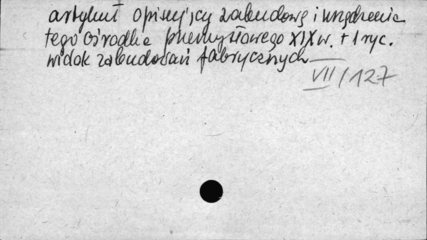 artykuł opisujący zabudowę i urządzenia
tego ośrodka przemysłowego XIX w. + 1 ryc.
widok zabudowań fabrycznych
VII/127